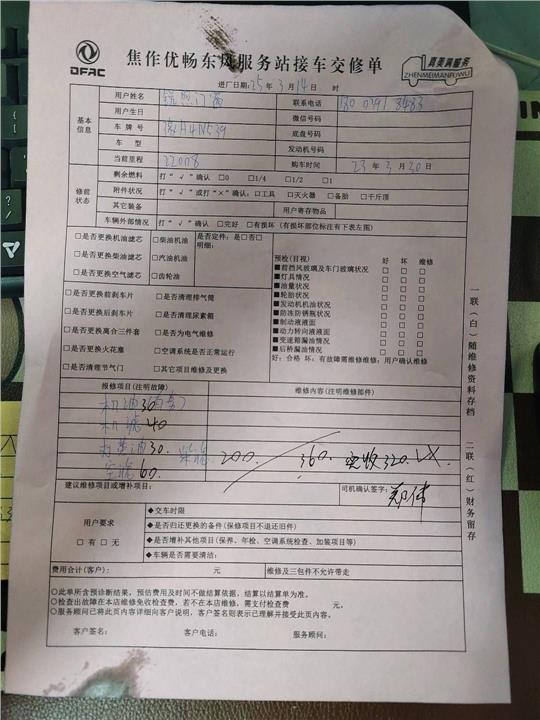 DFAC
焦作优畅东风服务站接车交修单
真美满服务
ZHENMEIMANFUWU
进厂日期:25年3月14日 时
基本信息
用户姓名
联系电话
用户生日
微信号码
车牌号
底盘号码
车型
发动机号
当前里程 22078
购车时间 23年3月20日
修前状态
剩余燃料 打“√”确认 □0 □1/4 □1/2 □1
附件状况 打“√”或打“×”确认:□工具 □灭火器 □备胎 □千斤顶
其它装备
用户寄存物品
车辆外部情况 打“√”确认 □完好 □有损坏(有损坏部位标注有下表左图)
□是否更换机油滤芯 □柴油机油
□是否更换柴油滤芯 □汽油机油
□是否更换空气滤芯 □齿轮油
是否定件:是□否□
明细:
□是否更换前刹车片 □是否清理排气筒
□是否更换后刹车片 □是否清理尿素箱
□是否更换离合三件套 □是否为电气维修
□是否更换火花塞 □空调系统是否正常运行
□是否清理节气门 □其它项目维修及更换
预检(目视) 好 坏 维修
■前挡风玻璃及车门玻璃状况 □ □ □
■灯具情况 □ □ □
■油量状况 □ □ □
■轮胎状况 □ □ □
■发动机机油状况 □ □ □
■防冻防锈瓶状况 □ □ □
■制动液液面 □ □ □
■动力转向液液面 □ □ □
■变速箱漏油情况 □ □ □
■后桥漏油情况 □ □ □
好:合格 坏:有故障需维修维修:用户确认维修
报修项目(注明故障)
维修内容(注明维修部件)
机油30
机滤40
30.
柴滤 200. 360. 实收320.
空滤60.
建议维修项目或增补项目:
司机确认签字:
郑伟
用户要求
□有 □无
◆交车时限
◆是否归还更换的备件(保修项目不退还旧件)
◆是否增补其他项目(保养、年检、空调系统检查、加装项目等)
◆车辆是否需要清洁:
费用合计(客户): 元
维修及三包件不允许带走
○此单所含预诊断结果,预估费用及时间不做结算依据,结算以结算单为准。
○检查出故障在本店维修免收检查费,若不在本店维修,需支付检查费 元。
○服务顾问已将此页内容详细向客户说明,客户签名则表示已理解并接受此页内容。
客户签名: 客户电话: 服务顾问:
一联(白)随维修资料存档
二联(红)财务留存